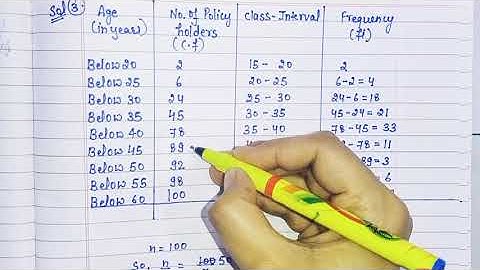 Sol(3) Age No. of Policy Class-Interval Frequency
(in year) holders (fi)
(c.f)
Below 20 2 15 - 20 2
Below 25 6 20 - 25 6-2=4
Below 30 24 25 - 30 24-6=18
Below 35 45 30 - 35 45-24=21
Below 40 78 35 - 40 78-45=33
Below 45 89 -78=11
Below 50 92 -89=3
Below 55 98 6
Below 60 100
n=100
So, n = 100 50